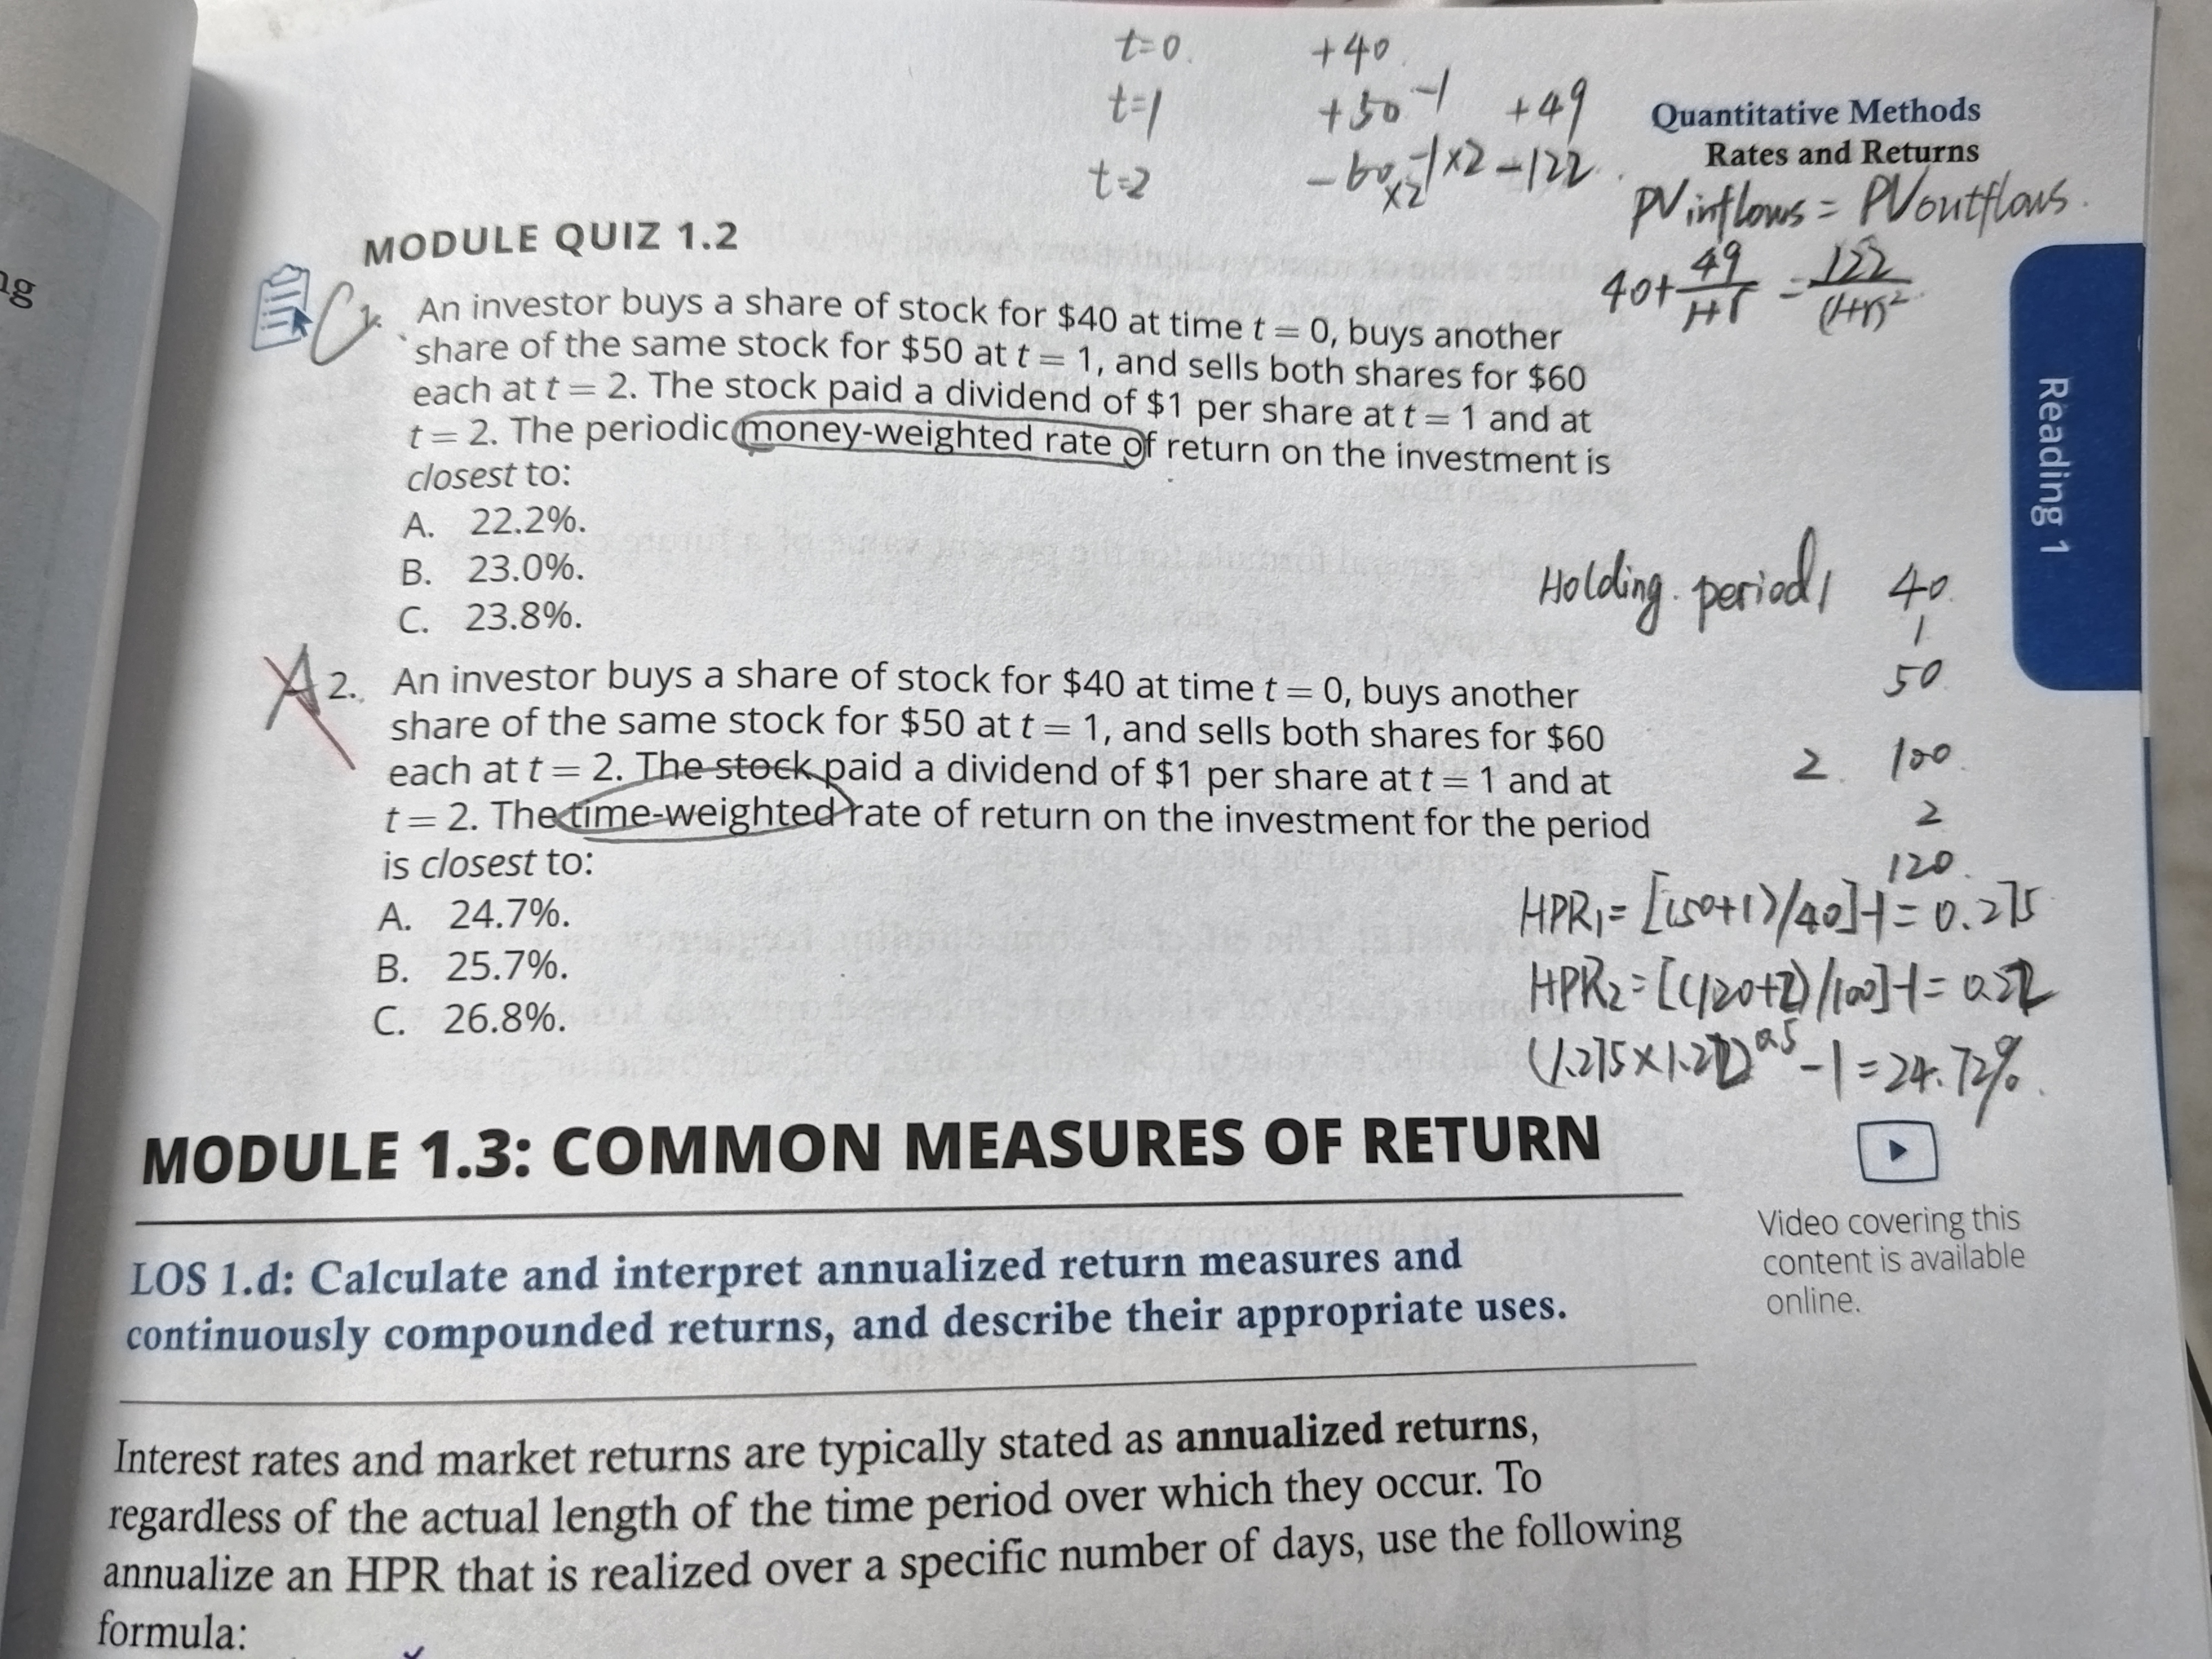 t=0. +40.
t=1 +50-1 +49
t=2 -60x2-1x2 -122.
Quantitative Methods
Rates and Returns
PV inflows = PV outflows.
40+49/1+r = 122/(1+r)²
ng
MODULE QUIZ 1.2
C 1. An investor buys a share of stock for $40 at time t = 0, buys another
share of the same stock for $50 at t = 1, and sells both shares for $60
each at t = 2. The stock paid a dividend of $1 per share at t = 1 and at
t = 2. The periodic money-weighted rate of return on the investment is
closest to:
A. 22.2%.
B. 23.0%.
C. 23.8%.
Reading 1
Holding period 1 40.
1
50
A 2. An investor buys a share of stock for $40 at time t = 0, buys another
share of the same stock for $50 at t = 1, and sells both shares for $60
each at t = 2. The stock paid a dividend of $1 per share at t = 1 and at
t = 2. The time-weighted rate of return on the investment for the period
is closest to:
A. 24.7%.
B. 25.7%.
C. 26.8%.
2. 100.
2
120.
HPR1 = [(50+1)/40]-1 = 0.275
HPR2 = [(120+2)/100]-1 = 0.22
(1.275×1.22)^0.5 -1 = 24.72%.
MODULE 1.3: COMMON MEASURES OF RETURN
Video covering this
content is available
online.
LOS 1.d: Calculate and interpret annualized return measures and
continuously compounded returns, and describe their appropriate uses.
Interest rates and market returns are typically stated as annualized returns,
regardless of the actual length of the time period over which they occur. To
annualize an HPR that is realized over a specific number of days, use the following
formula: